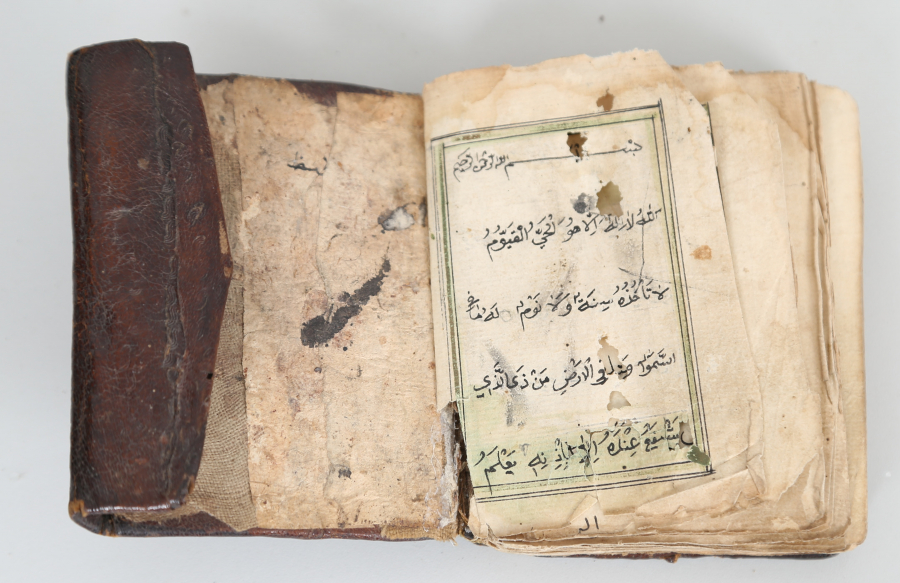 بسم الله الرحمن الرحيم
اَللهُ لا اِلهَ اِلاّ هُوَ الْحَيُّ الْقَيّوُمُ
لا تَأْخُذُهُ سِنَةٌ وَلا نَوْمٌ لَهُ مَا فِي
السَّمَواتِ وَمَا فِي الْاَرْضِ مَنْ ذَا الَّذَي
يَشْفَعُ عِنْدَهُ اِلاّ بِاِذْنِه يَعْلَمُ